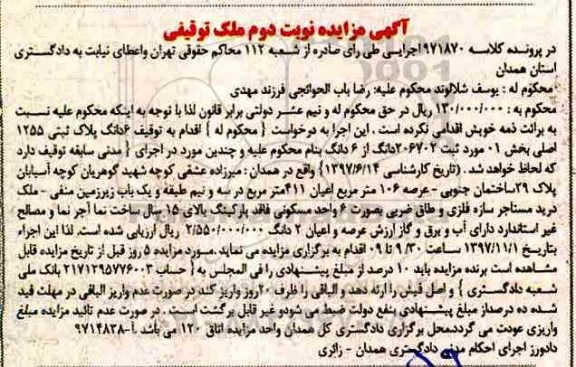 آگهی مزایده نوبت دوم ملک توقیفی
در پرونده کلاسه ۹۷۱۸۷۰اجرایی طی رای صادره از شعبه ۱۱۲ محاکم حقوقی تهران واعطای نیابت به دادگستری
استان همدان
محکوم له : یوسف شلالوند محکوم علیه: رضا باب الحوائجی فرزند مهدی
محکوم به : ۱۳۰/۰۰۰/۰۰۰ ریال در حق محکوم له و نیم عشر دولتی برابر قانون لذا با توجه به اینکه محکوم علیه نسبت
به برائت ذمه خویش اقدامی نکرده است . این اجرا به درخواست { محکوم له } اقدام به توقیف ۶دانگ پلاک ثبتی ۱۲۵۵
اصلی بخش ۰۱ مورد ثبت ۲۰۶۷۰۲دانگ از ۶ دانگ بنام محکوم علیه و چندین مورد در اجرای { مدنی سابقه توقیف دارد
که لحاظ خواهد شد. (تاریخ کارشناسی ۱۳۹۷/۶/۱۴) واقع در همدان : میرزاده عشقی کوچه شهید گوهریان کوچه آسیابان
پلاک ۲۹ساختمان جنوبی - عرصه ۱۰۶ متر مربع اعیان ۴۱۱متر مربع در سه و نیم طبقه و یک باب زیرزمین منفی - ملک
درید مستاجر سازه فلزی و طاق ضربی بصورت ۶ واحد مسکونی فاقد پارکینگ بالای ۱۵ سال ساخت نما آجر نما و مصالح
غیر استاندارد دارای آب و برق و گاز ارزش عرصه و اعیان ۲ دانگ ۲/۵۵۰/۰۰۰/۰۰۰ ریال ارزیابی شده است. لذا این اجراء
بتاریخ ۱۳۹۷/۱۱/۱ ساعت ۹/۳۰ تا ۰۹ اقدام به برگزاری مزایده می نماید .مورد مزایده ۵ روز قبل از تاریخ مزایده قابل
مشاهده است برنده مزایده باید ۱۰ درصد از مبلغ پیشنهادی را فی المجلس به {حساب ۲۱۷۱۲۹۵۷۷۶۰۰۳ بانک ملی
شعبه دادگستری } و اصل فیش را ارئه دهد و الباقی را ظرف ۲۰ روز واریز کند در صورت عدم واریز الباقی در مهلت قید
شده ده درصداز مبلغ پیشنهادی بنفع دولت ضبط می شودو غیر قابل برگشت است . در صورت عدم تائید مزایده مبلغ
واریزی عودت می گردد.محل برگزاری دادگستری کل همدان واحد مزایده اتاق ۱۲۰ می باشد .آ-۹۷۱۴۸۳۸
دادورز اجرای احکام مدنی دادگستری همدان - زائری